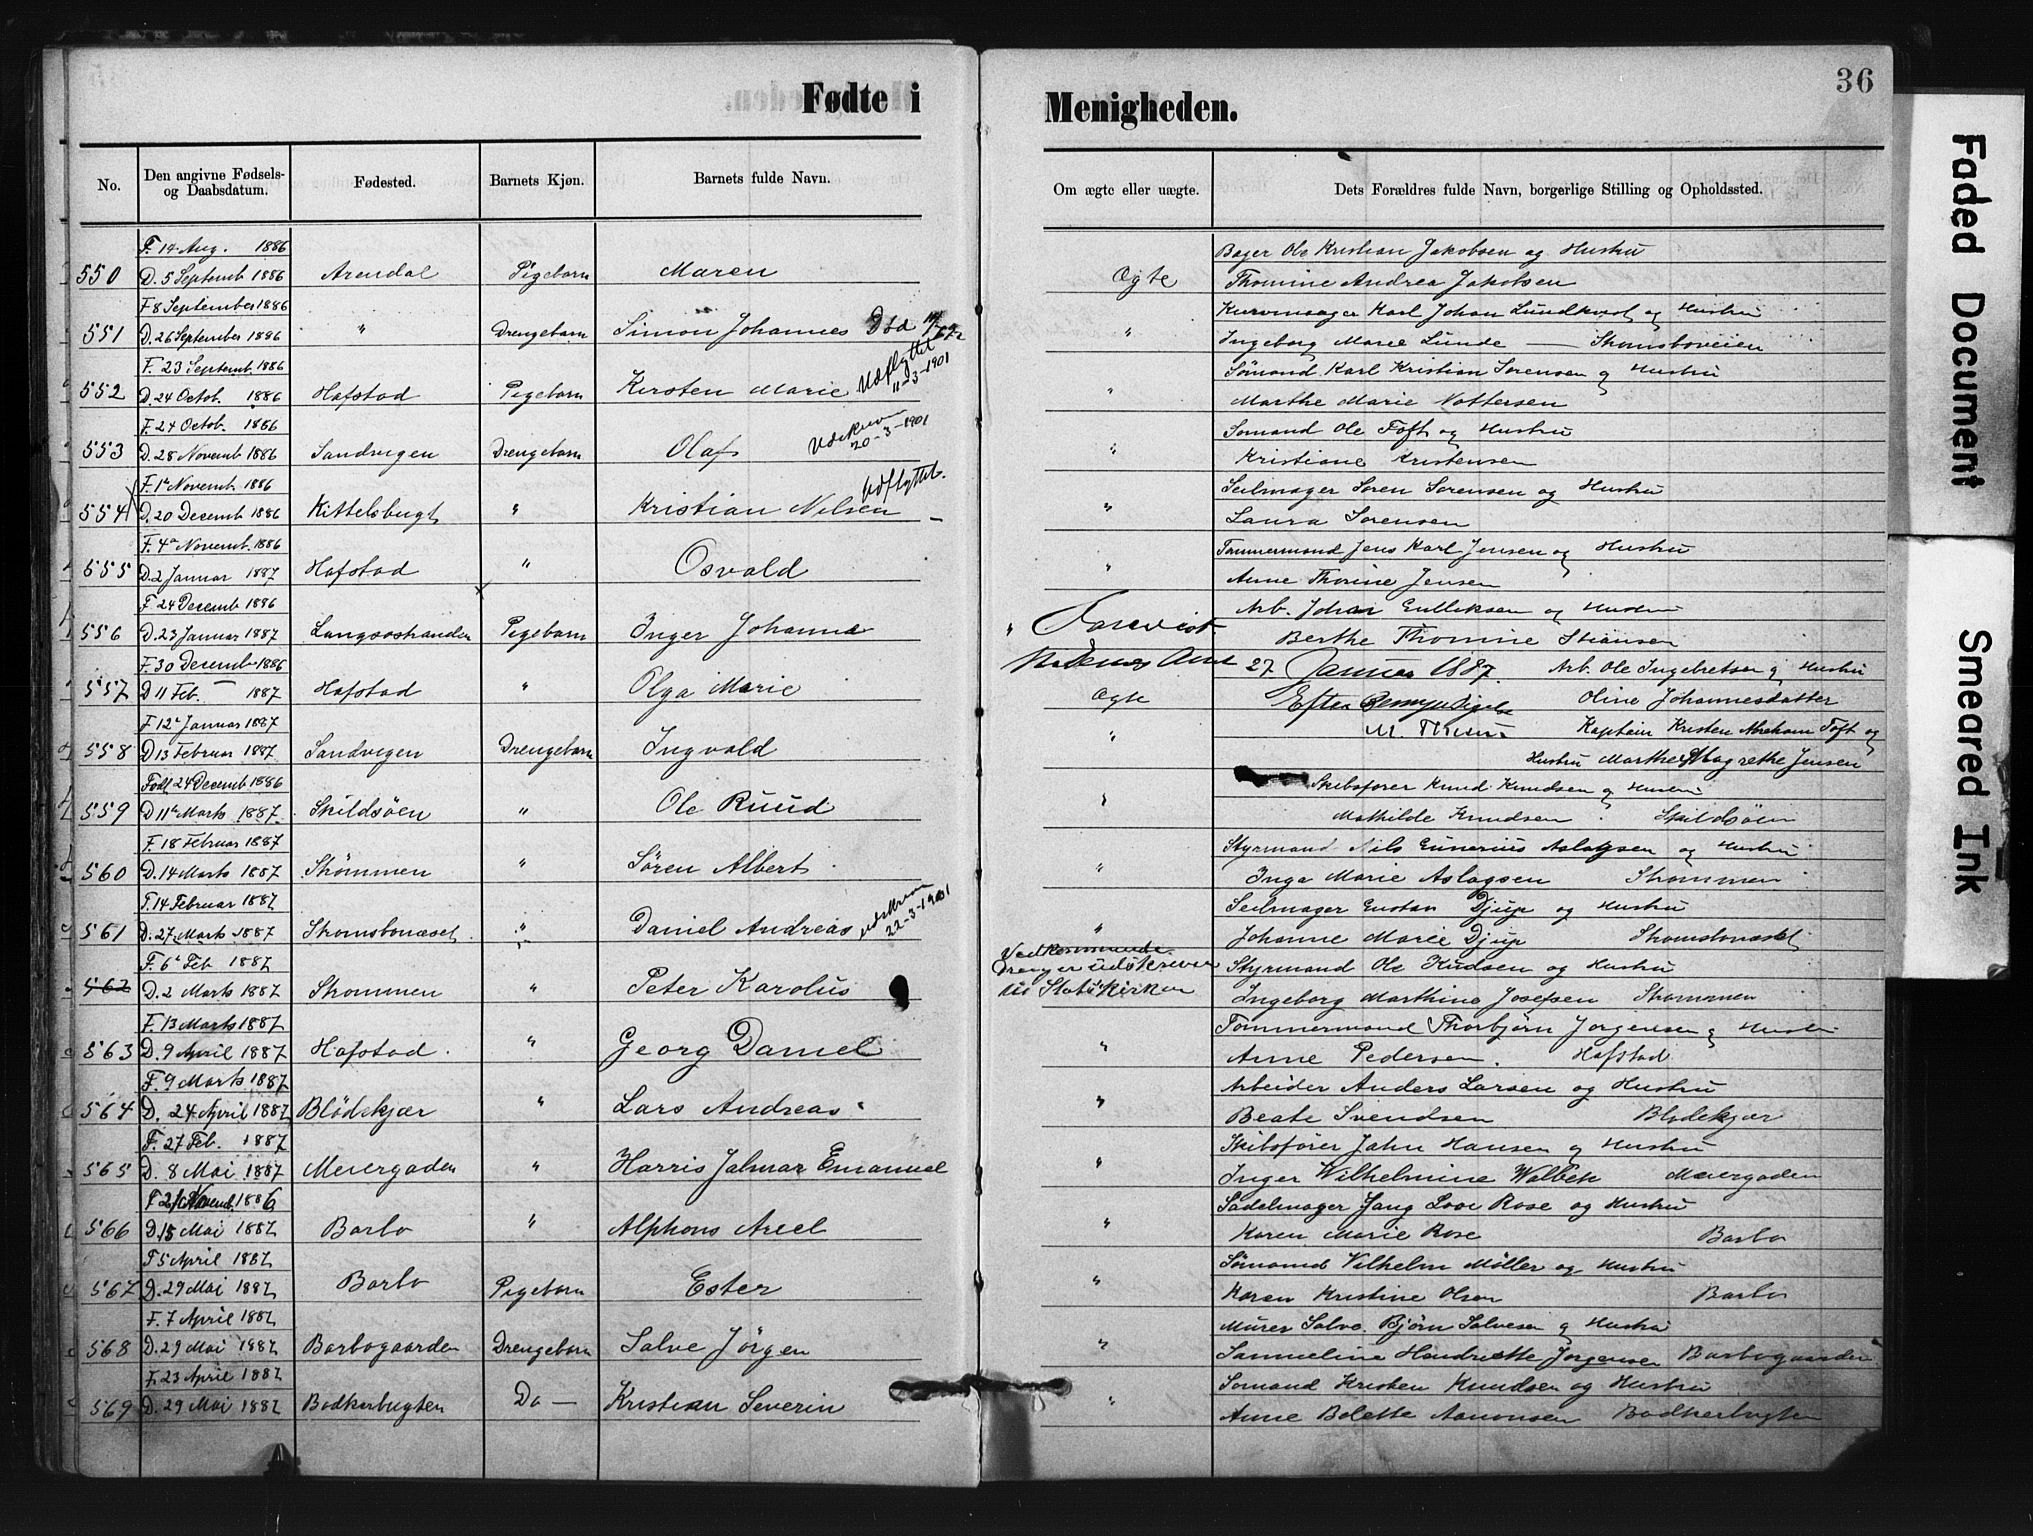 Fødte i
Menigheden.
36
No.
Den angivne Fødsels-
og Daabsdatum.
Fødested.
Barnets Kjøn.
Barnets fulde Navn.
Om ægte eller uægte.
Dets Forældres fulde Navn, borgerlige Stilling og Opholdssted.
F. 14 Aug. 1886
550 D. 5 Septemb 1886 Arendal Pigebarn Maren
Ægte
Bager Ole Kristian Jakobsen og Hustru
Thomine Andrea Jakobsen
F 8 September 1886
551 D. 26 September 1886 " Drengebarn Simon Johannes Död
"
Kurvmager Karl Johan Lundkvist og Hustru
Ingeborg Marie Lunde — Strömsboveien
F. 23 Septemb. 1886
552 D. 24 Octob. 1886 Hafstad Pigebarn Kirsten Marie Udflyttet 11-3-1901
"
Sømand Karl Kristian Sørensen og Hustru
Marthe Marie Nottersen
F. 24 Octob. 1886
553 D. 28 Novemb 1886 Sandvigen Drengebarn Olaf Udskreven 20-3-1901
"
Sømand Ole Toft og Hustru
Kristiane Kristensen
F. 1ste Novemb. 1886
554 D. 20 Decemb 1886 Kittelsbugt " Kristian Nilsen Udflyttet.
"
Seilmager Søren Sørensen og Hustru
Laura Sørensen
F. 4de Novemb. 1886
555 D. 2 Januar 1887 Hafstad " Osvald
"
Tømmermand Jens Karl Jensen og Hustru
Anne Thorine Jensen
F. 24 Decemb 1886
556 D. 23 Januar 1887 Langsæstranden Pigebarn Inger Johanna
"
Arb. Johan Gulliksen og Hustru
Berthe Thomine Stiansen
Forevist
Nedenes Amt 27 Januar 1887.
Efter Bemyndigelse
F. 30 Decemb 1886
557 D 11 Feb. 1887 Hafstad " Olga Marie
Ægte
Arb. Ole Ingebretsen og Hustru
Oline Johannesdatter
F 12te Januar 1887
558 D 13 Februar 1887 Sandvigen Drengebarn Ingvald
"
Kaptein Kristen Abraham Toft og
Hustru Marthe Magrethe Jensen
Född 24 Decemb 1886
559 D 11te Marts 1887. Skildsöen " Ole Ruud
"
Skibsfører Knud Knudsen og Hustru
Mathilde Knudsen Skildsöen
F. 18 Februar 1887
560 D. 14 Marts 1887 Strømmen " Søren Albert
"
Styrmand Nils Gunerius Aslagsen og Hustru
Inga Marie Aslagsen Strømmen
F. 14 Februar 1887
561 D. 27 Marts 1887 Strømsbonæset " Daniel Andreas udskreven 22-3-1901
"
Seilmager Gustav Djup og Hustru
Johanne Marie Djup Strømsbonæset
F. 6te Feb 1887
562 D. 2 Marts 1887 Strømmen " Peter Karolus
Vedkommende
Dreng er udskreven
til Statskirken
Styrmand Ole Knudsen og Hustru
Ingeborg Marthine Josefsen Strømmen
F. 13 Marts 1887
563 D. 9 April 1887 Hafstad " Georg Daniel
"
Tømmermand Thorbjørn Jørgensen og Hustru
Anne Pedersen. Hafstad
F. 9 Marts 1887
564 D. 24 April 1887 Blödekjær " Lars Andreas
"
Arbeider Anders Larsen og Hustru
Beate Svendsen Blödekjær
F. 27 Feb. 1887
565 D. 8 Mai 1887 Meiergaden " Harris Jalmar Emanuel
"
Skibsfører John Hansen og Hustru
Inger Wilhelmine Walbek Meiergaden
F 21 Novemb. 1886
566 D. 15 Mai 1887 Barbo " Alphons Axel
"
Sadelmager Jang Love Rose og Hustru
Karen Marie Rose Barbo
F 5 April 1887
567 D. 29 Mai 1887 Barbo Pigebarn Ester
"
Sømand Vilhelm Møller og Hustru
Karen Kristine Olsen Barbo
F. 7 April 1887
568 D. 29 Mai 1887 Barbogaarden Drengebarn Salve Jörgen
"
Murer Salve Bjørn Salvesen og Hustru
Samueline Hendriette Jörgensen Barbogaarden
F. 23 April 1887
569 D. 29 Mai 1887 Bødkerbugten Do — Kristian Severin
"
Sømand Kristen Knudsen og Hustru
Anne Bolette Aanonsen Bødkerbugten
Faded Document
Smeared Ink